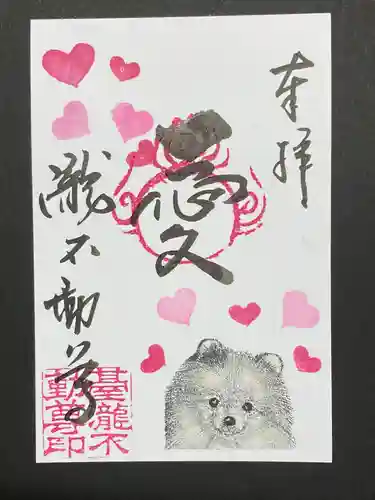 奉拝
愛
瀧不動尊
墓龍不
動尊印